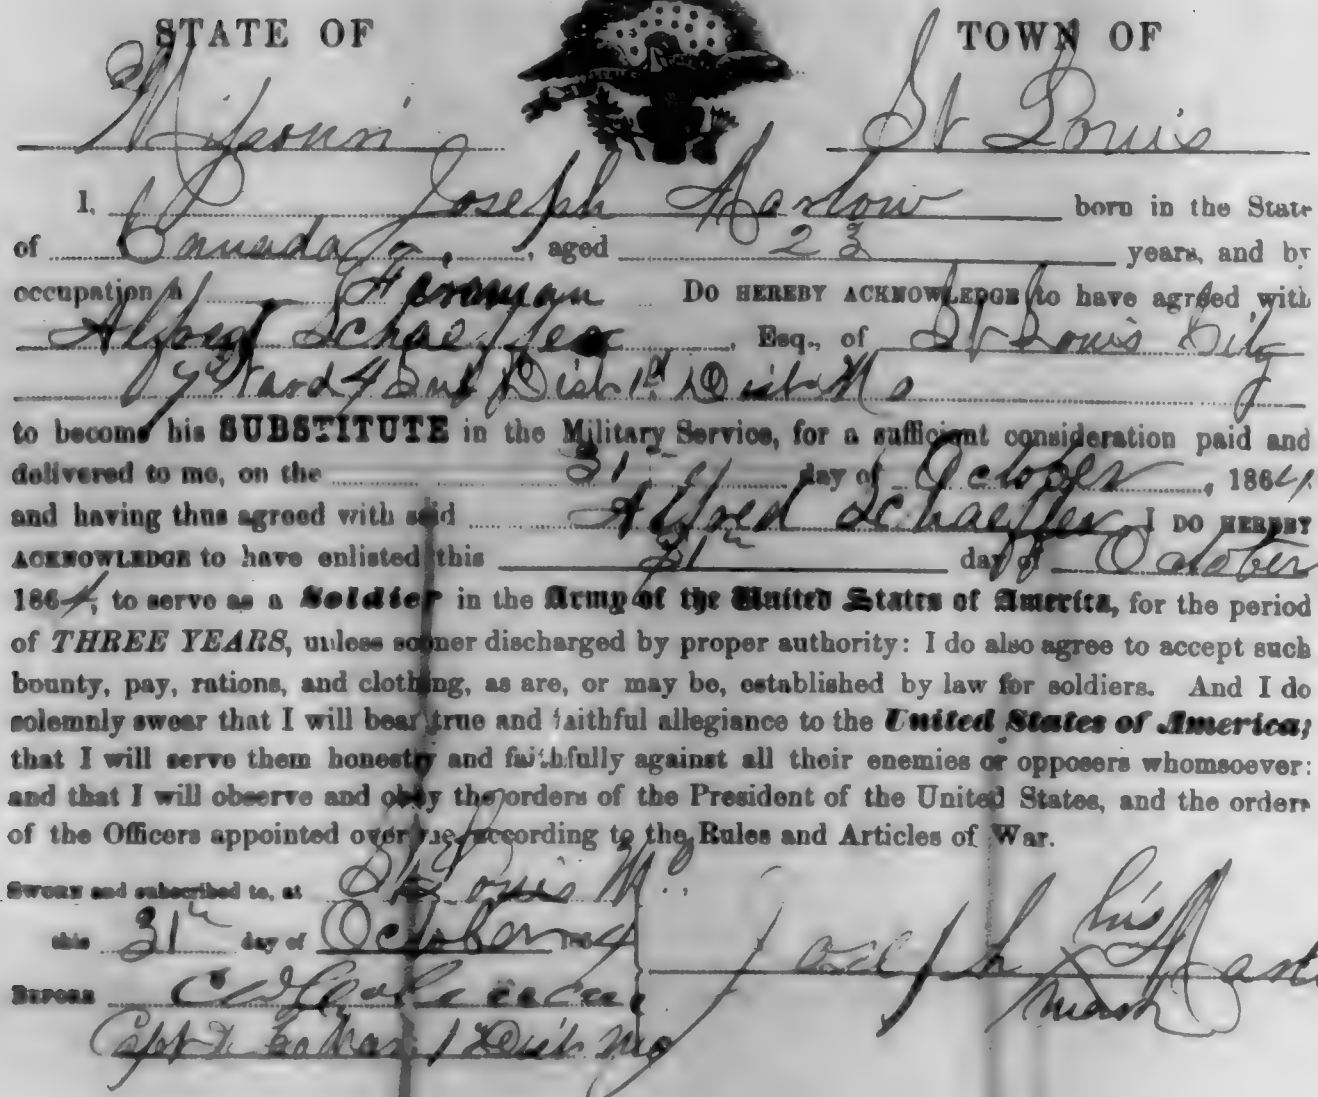 STATE OF TOWN OF
Missouri St Louis
I, Joseph born in the State
of Canada , aged 23 years, and by
occupation a DO HEREBY ACKNOWLEDGE to have agreed with
Alfred Schaeffer , Esq., of St Louis City
7 Ward 4 Sub Dist 1st Dist Mo
to become his SUBSTITUTE in the Military Service, for a sufficient consideration paid and
delivered to me, on the 31 day of October , 1864
and having thus agreed with said Alfred Schaeffer I DO HEREBY
ACKNOWLEDGE to have enlisted this 31st day of October
1864, to serve as a Soldier in the Army of the United States of America, for the period
of THREE YEARS, unless sooner discharged by proper authority: I do also agree to accept such
bounty, pay, rations, and clothing, as are, or may be, established by law for soldiers. And I do
solemnly swear that I will bear true and faithful allegiance to the United States of America;
that I will serve them honestly and faithfully against all their enemies or opposers whomsoever:
and that I will observe and obey the orders of the President of the United States, and the orders
of the Officers appointed over me, according to the Rules and Articles of War.
Sworn and subscribed to, at St Louis Mo
this 31st day of October 1864
Joseph his X mark
BEFORE
Capt & Pro Mar 1 Dist Mo